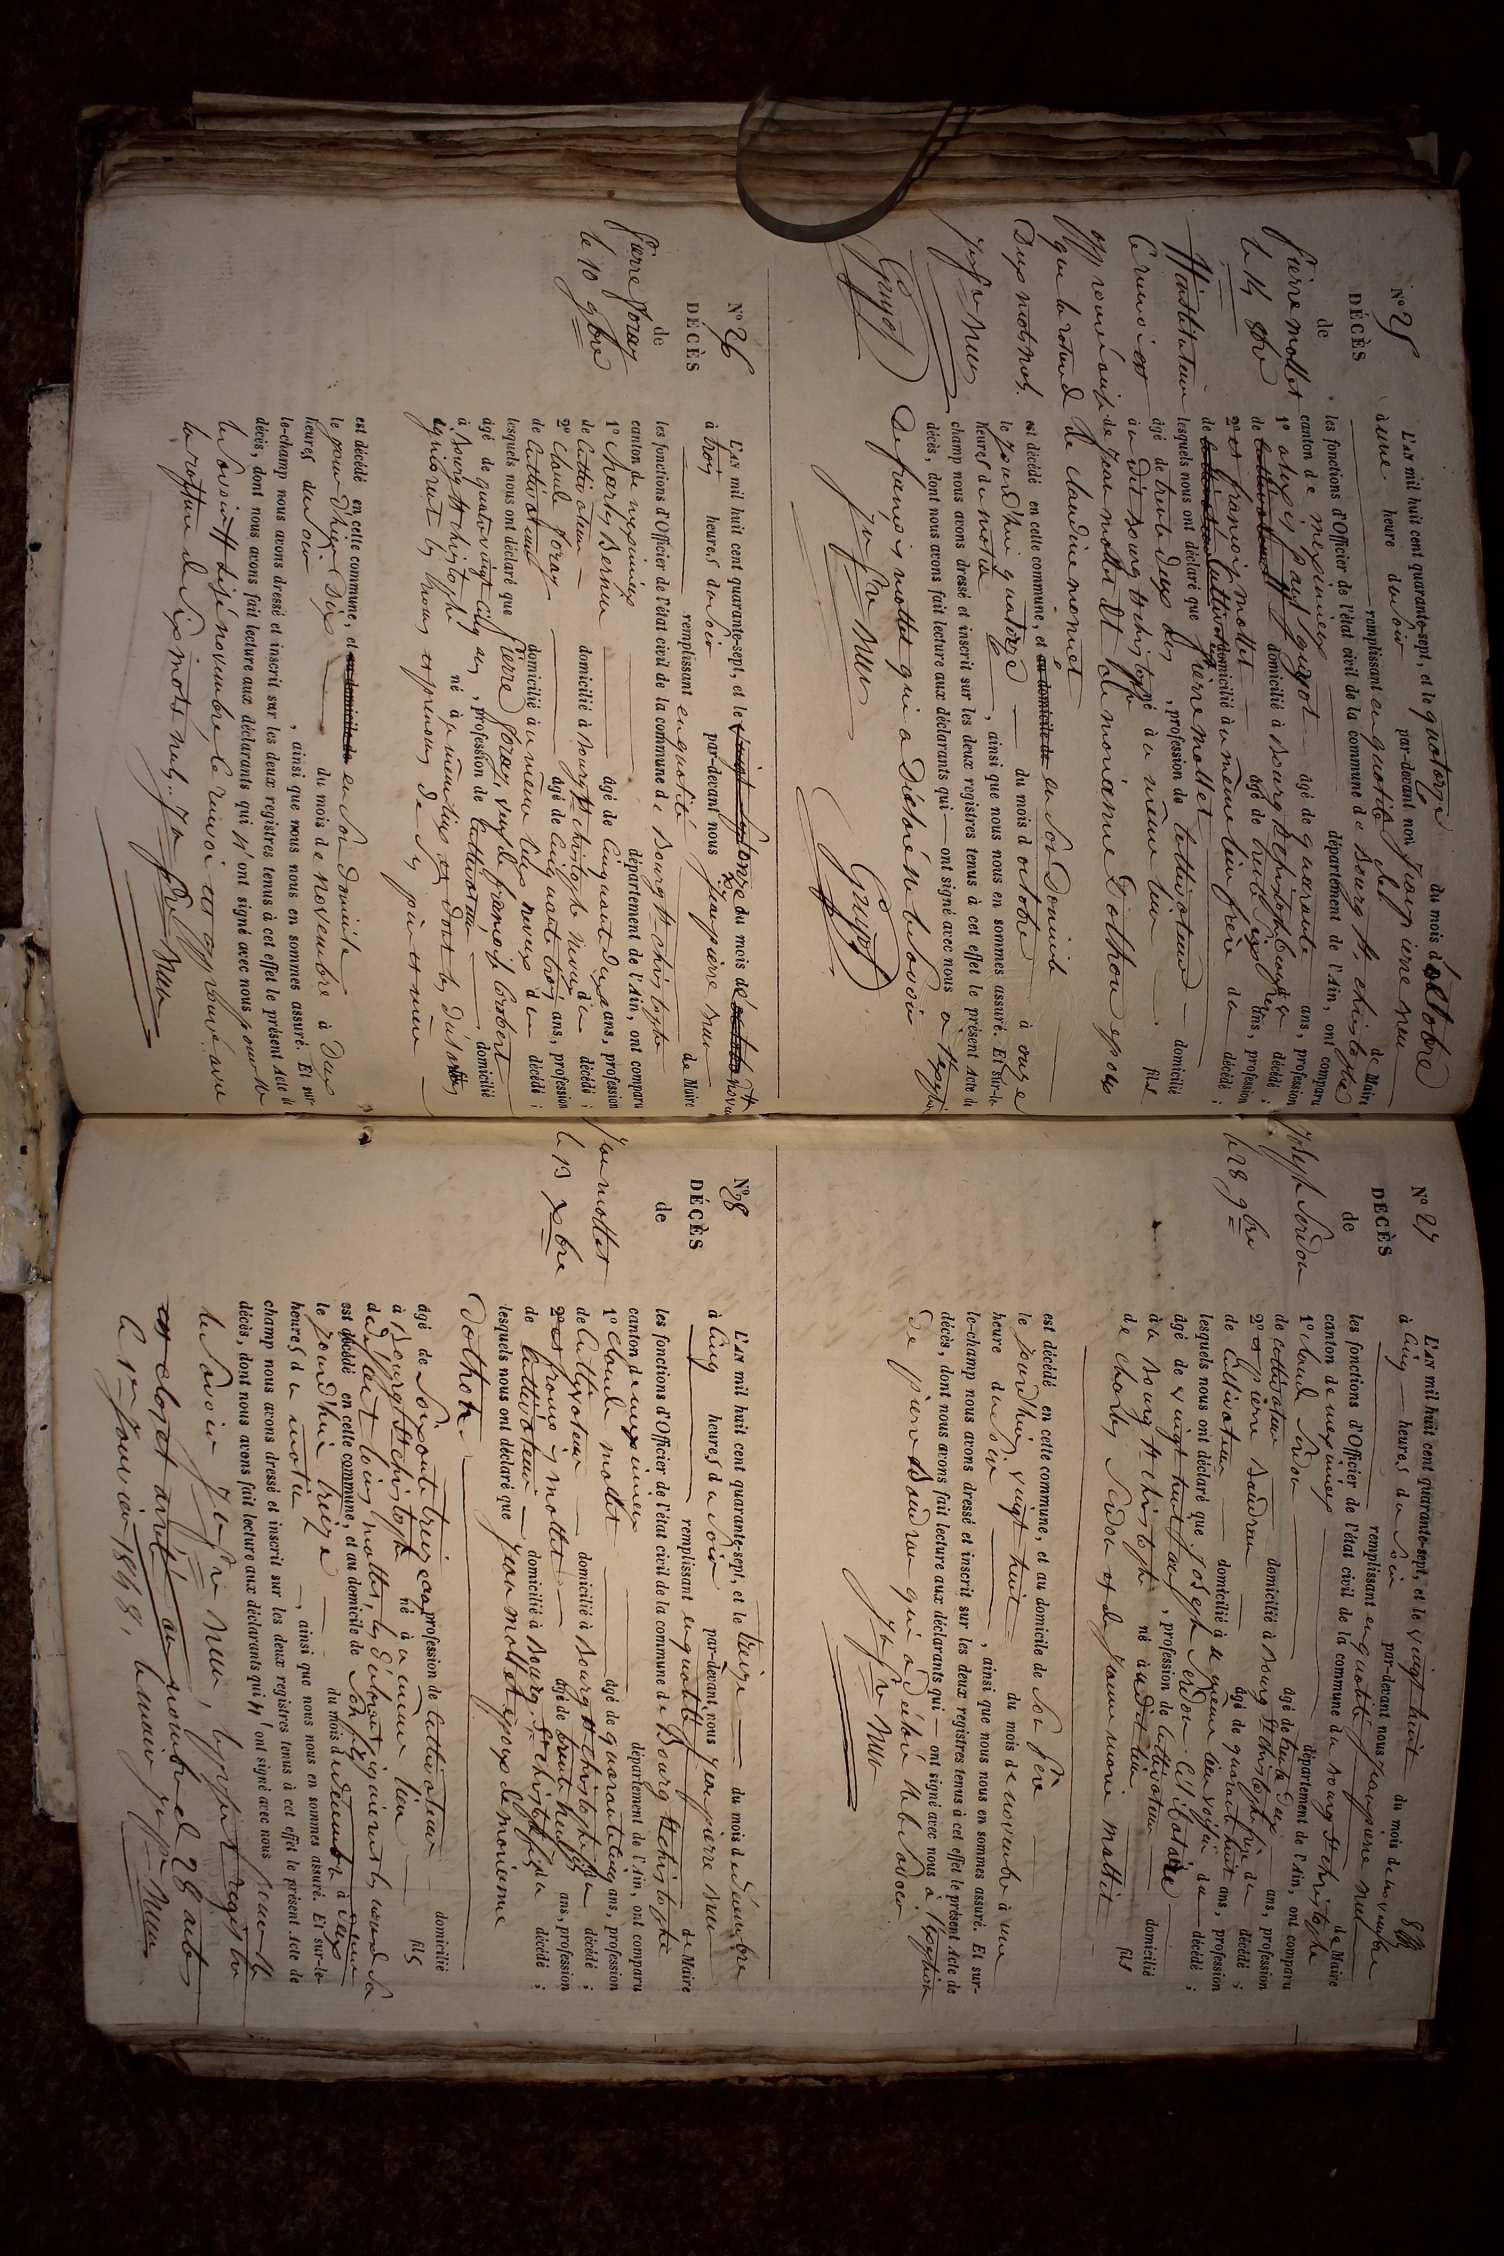 N° 25
DÉCÈS
de
Pierre mollet
le 14 8bre
L'AN mil huit cent quarante-sept, et le quatorze du mois d'octobre
à une heure du soir par-devant nous jean pierre neu
remplissant en qualité de Maire
les fonctions d'Officier de l'état civil de la commune de Bourg St christophe
canton de meximieux département de l'Ain, ont comparu
1° alexis paul guyot âgé de quarante ans, profession
de domicilié à Bourg St christophe du décédé ;
2° et francois mollet âgé de ans, profession
de cultivateur domicilié à même lieu frère du décédé ;
lesquels nous ont déclaré que pierre mollet
âgé de trente deux ans, profession de cultivateur domicilié
à u dit Bourg St christophe né à u même lieu fils
de jean mollet et de monianne Dothon epoux
de claudine monnet
est décédé en cette commune, et au domicile de en Son Domicile
le jourd'hui quatorze du mois d octobre à onze
heures du matin, ainsi que nous nous en sommes assuré. Et sur-le-
champ nous avons dressé et inscrit sur les deux registres tenus à cet effet le présent Acte de
décès, dont nous avons fait lecture aux déclarants qui ont signé avec nous a
De francois mollet qui a Déclaré ne le Savoir
jn pre neu Guyot
# instituteur
le renvoi est
approuvé ainsi
que la rature de
Deux mots nuls.
jn pre neu
Guyot
N° 26
DÉCÈS
de
Pierre Joray
le 10 9bre
L'AN mil huit cent quarante-sept, et le onze du mois de
à trois heures du soir par-devant nous jean pierre neu
remplissant en qualité de Maire
les fonctions d'Officier de l'état civil de la commune de Bourg St christophe
canton de meximieux département de l'Ain, ont comparu
1° Charles Bernin âgé de cinquante deux ans, profession
de cultivateur domicilié à Bourg St christophe neveu du décédé ;
2° Claude Joray âgé de cinquante trois ans, profession
de cultivateur domicilié à u même lieu neveu du décédé ;
lesquels nous ont déclaré que Pierre Joray, veuf de francoise
âgé de quatre vingt cinq ans, profession de cultivateur domicilié
à Bourg St christophe né à u même lieu et dont les
ignorent les noms et prenoms de Ses père et mère
est décédé en cette commune, et au domicile de en Son Domicile
le jour d'hier Dix du mois de novembre à Deux
heures du soir, ainsi que nous nous en sommes assuré. Et sur-
le-champ nous avons dressé et inscrit sur les deux registres tenus à cet effet le présent Acte de
décès, dont nous avons fait lecture aux déclarants qui n'ont signé avec nous pour ne
le Savoir novembre, le renvoi est approuvé avec
la rature de Six mots nuls. jn pre neu
N° 27
DÉCÈS
de
Joseph Serdon
le 28 9bre
L'AN mil huit cent quarante-sept, et le vingt huit du mois de novembre
à cinq heures du Soir par-devant nous jean pierre neu
remplissant en qualité de Maire
les fonctions d'Officier de l'état civil de la commune du Bourg St christophe
canton de meximieux département de l'Ain, ont comparu
1° claude Serdon âgé de trente deux ans, profession
de cultivateur domicilié à Bourg St christophe frère du décédé ;
2° et pierre Baudran âgé de quarante huit ans, profession
de cultivateur domicilié à u même lieu voisin du décédé ;
lesquels nous ont déclaré que joseph Serdon célibataire
âgé de vingt huit ans, profession de cultivateur domicilié
à u Bourg St christophe né à u dit lieu fils
de charles Serdon et de jeanne marie mollet
est décédé en cette commune, et au domicile de Son frère
le jourd'hui vingt huit du mois de novembre à une
heure du Soir, ainsi que nous nous en sommes assuré. Et sur-
le-champ nous avons dressé et inscrit sur les deux registres tenus à cet effet le présent Acte de
décès, dont nous avons fait lecture aux déclarants qui ont signé avec nous à l'exception
de pierre Baudran qui a déclaré ne le Savoir
jn pre neu
N° 28
DÉCÈS
de
jean mollet
le 13 Xbre
L'AN mil huit cent quarante-sept, et le treize du mois de décembre
à cinq heures du Soir par-devant nous jean pierre neu
remplissant en qualité de Maire
les fonctions d'Officier de l'état civil de la commune de Bourg St christophe
canton de meximieux département de l'Ain, ont comparu
1° claude mollet âgé de quarante cinq ans, profession
de cultivateur domicilié à Bourg St christophe du décédé ;
2° et francois mollet âgé de trente huit ans, profession
de cultivateur domicilié à Bourg St christophe fils du décédé ;
lesquels nous ont déclaré que jean mollet epoux de monianne
dothon
âgé de Soixante treize ans, profession de cultivateur domicilié
à Bourg St christophe né à u même lieu fils
de
est décédé en cette commune, et au domicile de Son fils
le jourd'hui treize du mois de décembre à
heures du matin, ainsi que nous nous en sommes assuré. Et sur-le-
champ nous avons dressé et inscrit sur les deux registres tenus à cet effet le présent Acte de
décès, dont nous avons fait lecture aux déclarants qui n'ont signé avec nous pour ne
le Savoir jn pre neu, le présent registre
est clos et arrêté au nombre de 28 actes
le 1er janvier 1848. le maire jn pre neu